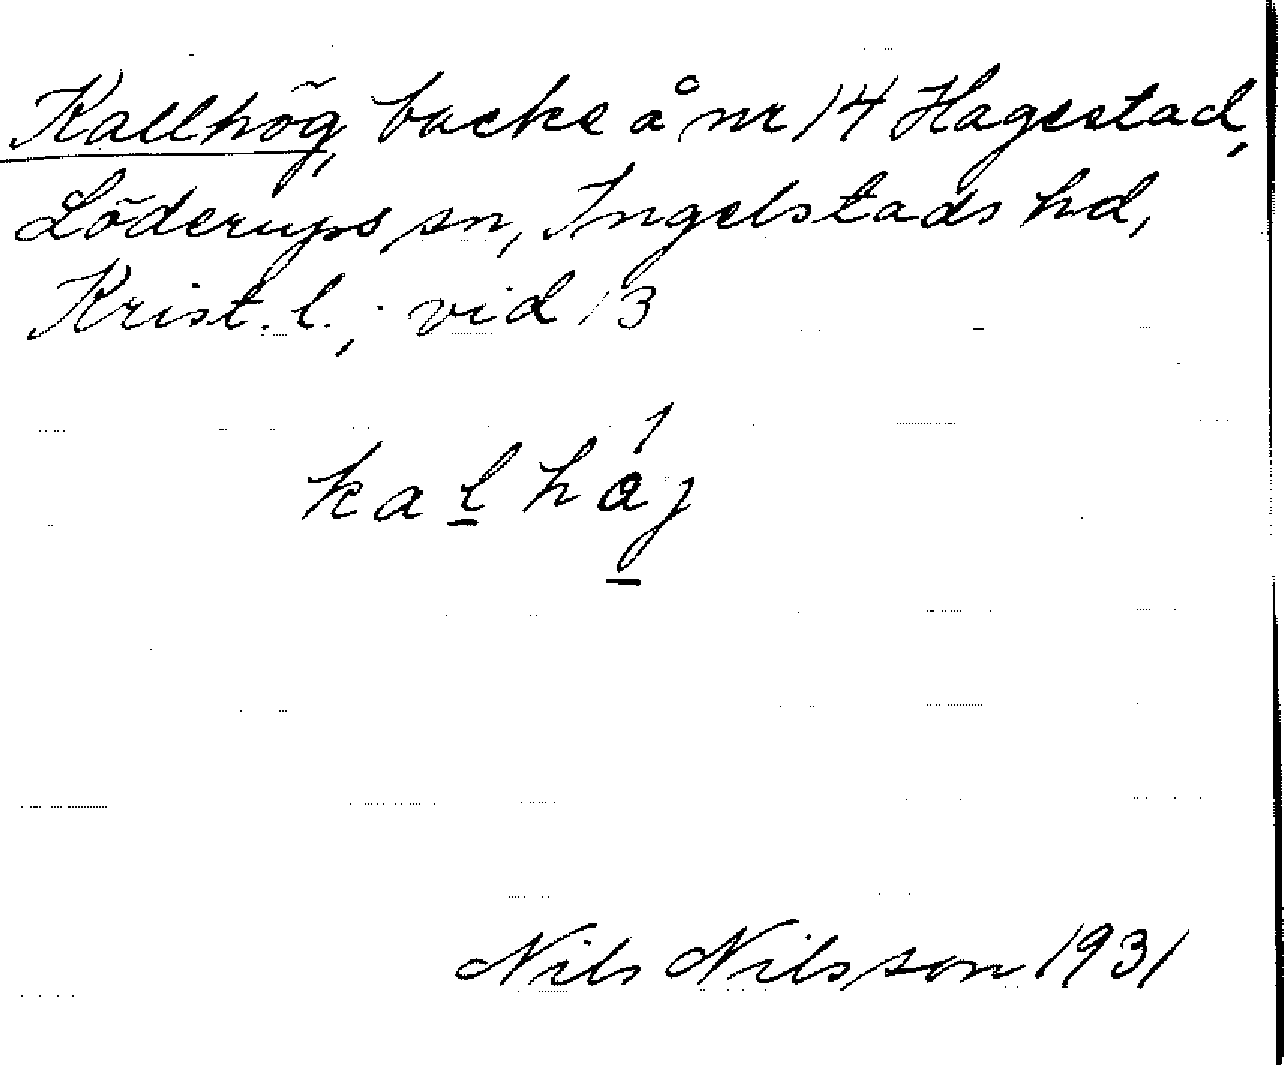 Kallhög, backe å nr 14 Hagestad,
Löderups sn, Ingelstads hd,
Krist. l.; vid 13
kalhåj
Nils Nilsson 1931